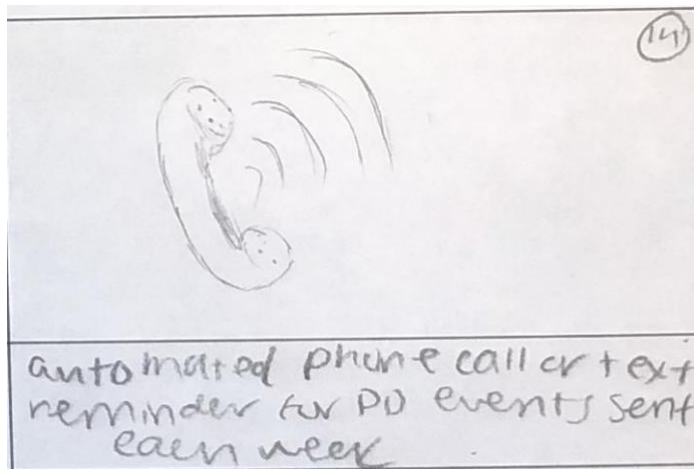 14
automated phone call or text
reminder for PD events sent
each week